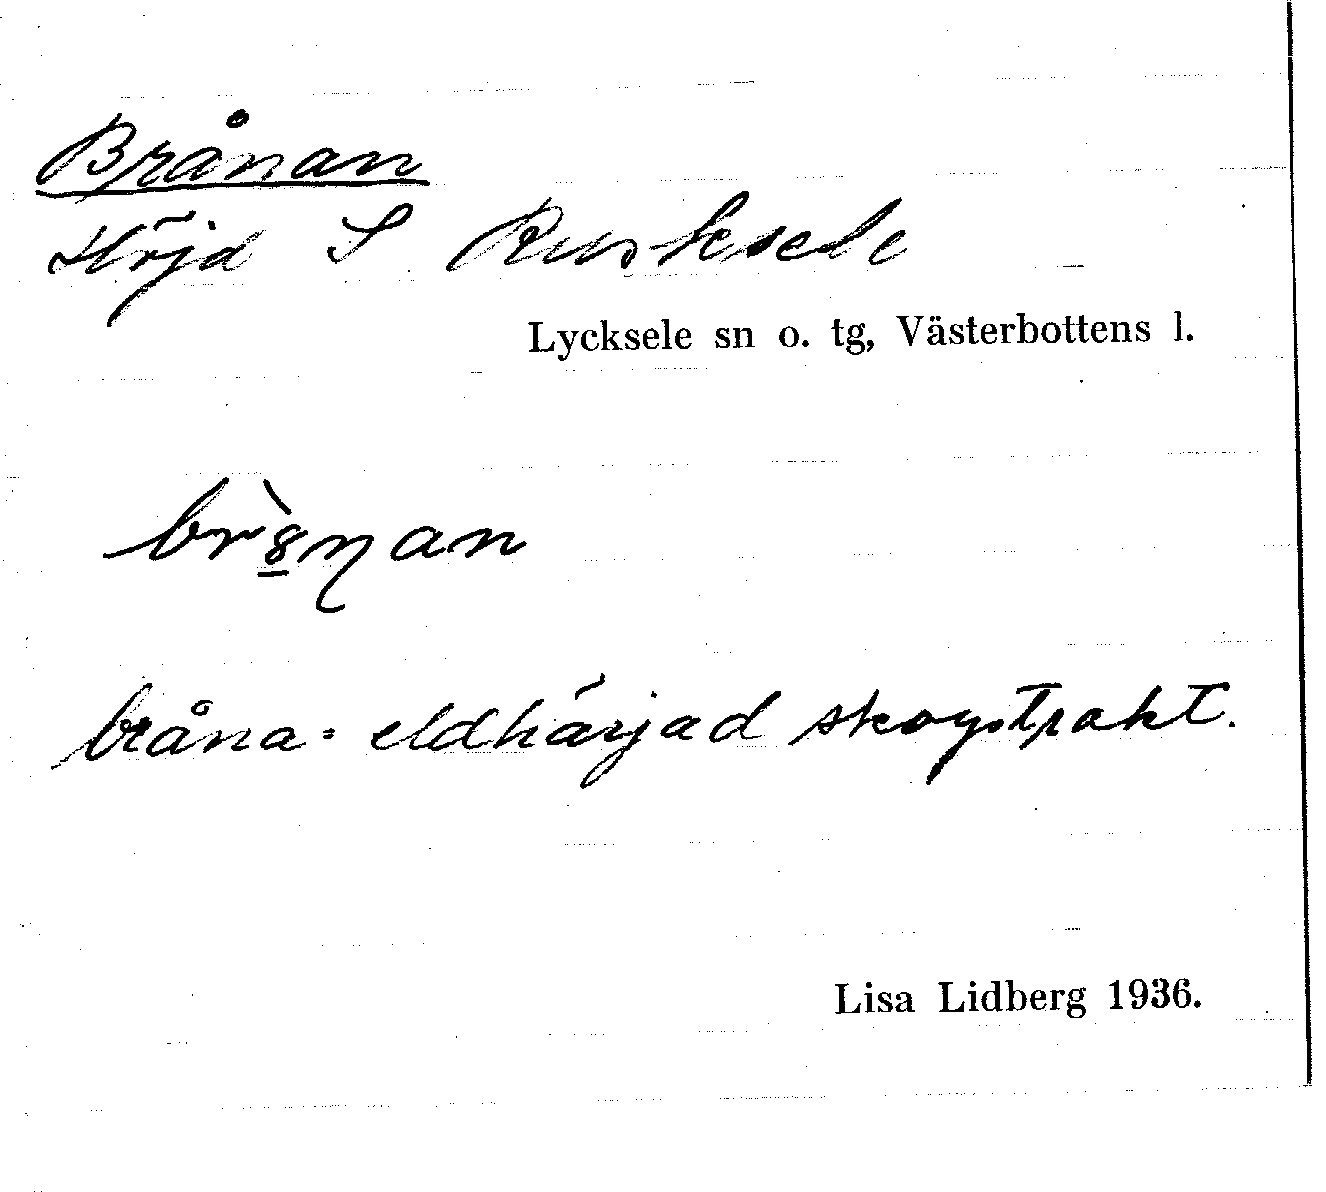 Brånan
Höjd S Rusksele
Lycksele sn o. tg, Västerbottens l.
brånan
bråna = eldhärjad skogstrakt.
Lisa Lidberg 1936.